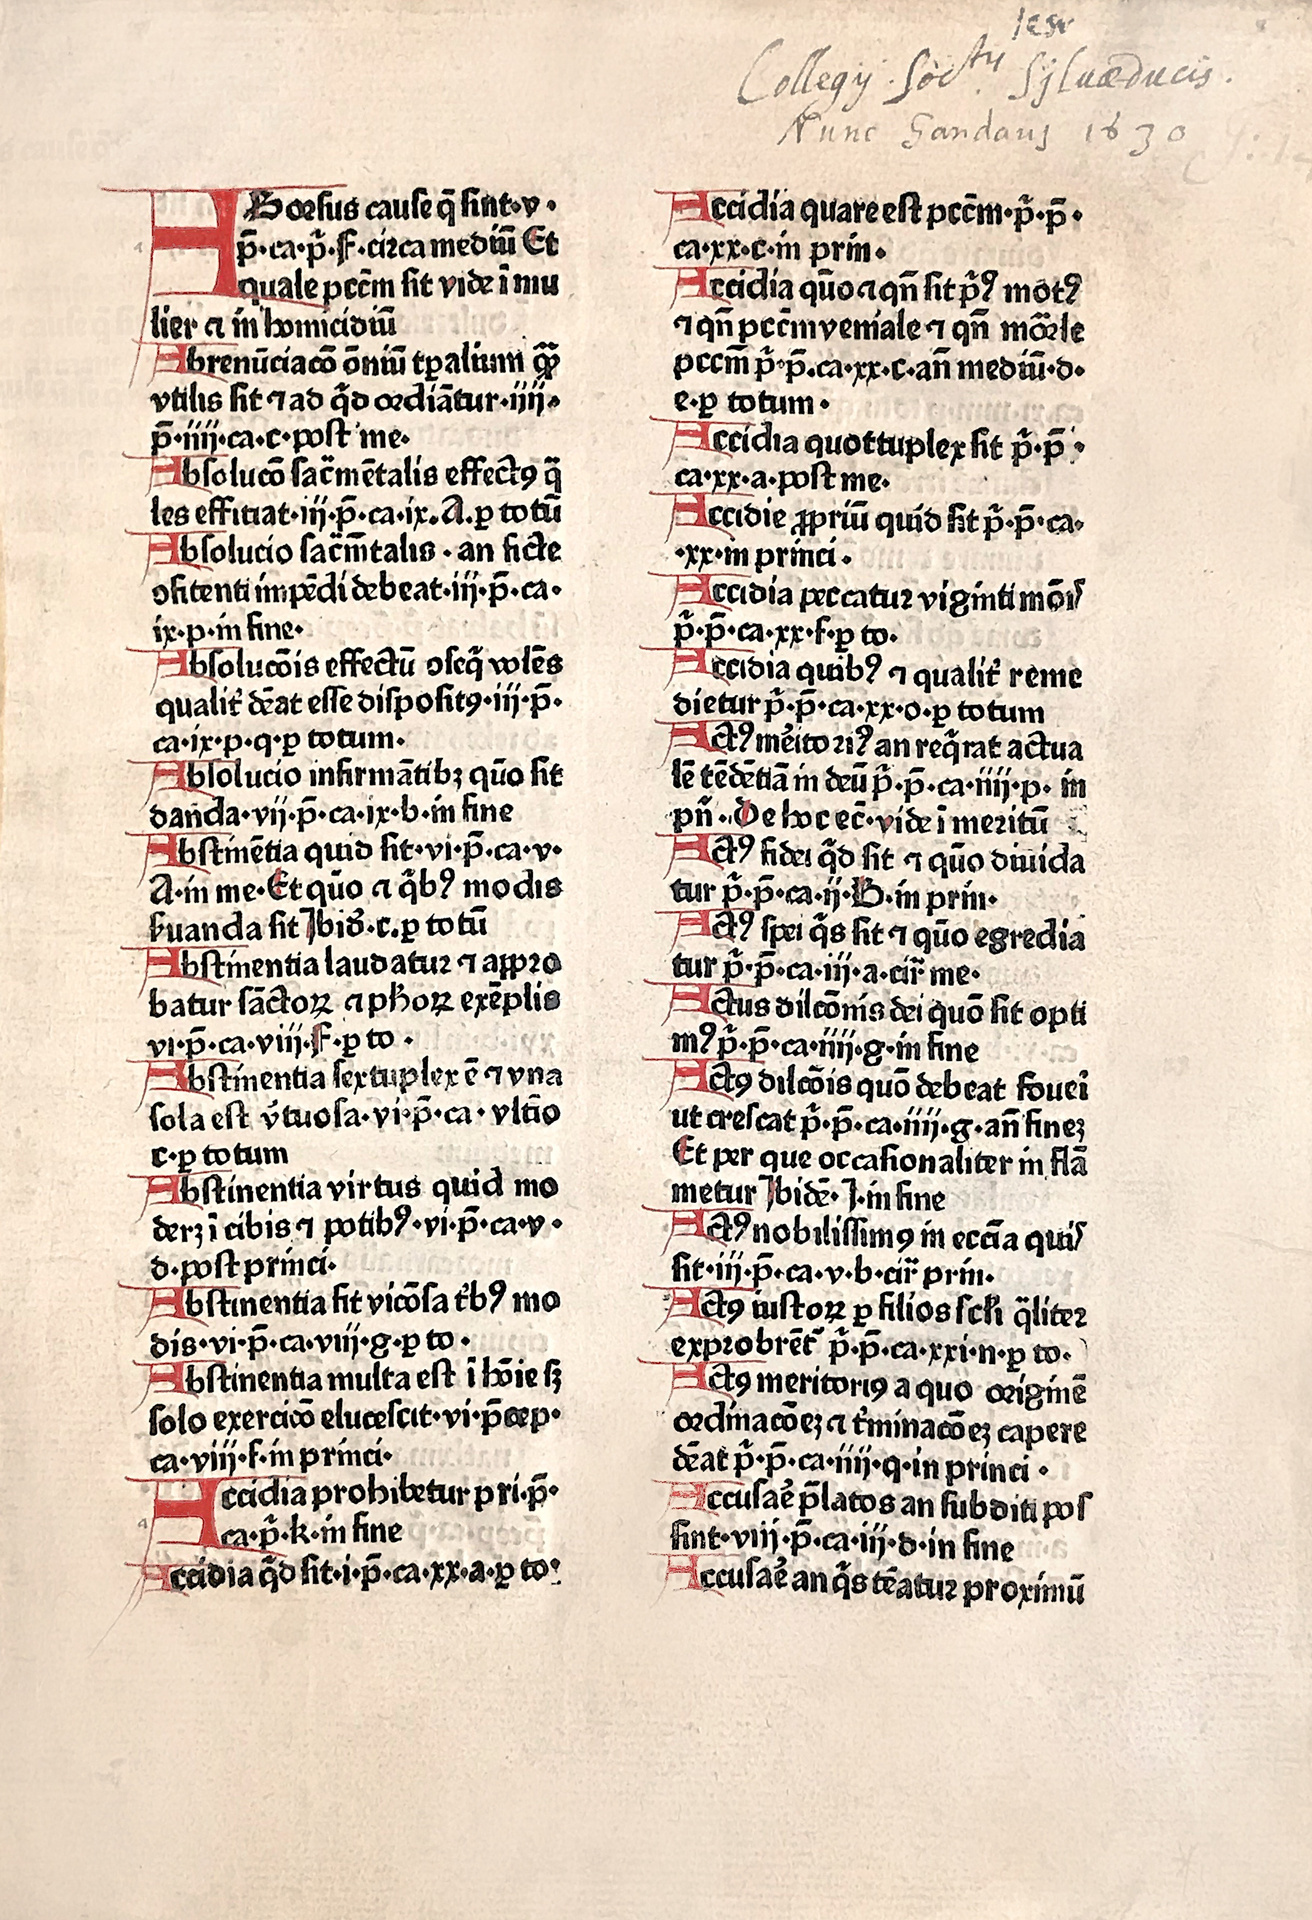 Iesv
Collegij Soc.tis Sylvæducis.
Nunc Gandavj 1630
ABorsus cause q̄ sint·v·
p̄·ca·p̃·f·circa mediū Et
quale pccm̄ sit vide ī mu
lier ⁊ in homicidiū
Abrenūciacō ōniū tꝑalium qꝫ̄
vtilis sit ⁊ ad q̇d ordiātur·iiij·
p̄·iiij·ca·c·post me·
Absolucō sac̄mētalis effectꝯ q̄
les effitiat·iij·p̄·ca·ix·A·ꝑ totū
Absolucio sac̄m̄talis·an ficte
ꝯfitenti impēdi debeat·iij·p̄·ca·
ix·p·in fine·
Absolucōis effectū ꝯseq̇ volēs
qualit̃ dēat esse dispositꝯ·iij·p̄·
ca·ix·p·q·ꝑ totum·
Absolucio infirmātibꝫ quō sit
danda·vij·p̄·ca·ix·b·in fine
Abstinētia quid sit·vi·p̄·ca·v·
A·in me·Et quō ⁊ q̇bꝰ modis
ẜuanda sit Ibid̃·c·ꝑ totū
Abstinentia laudatur ⁊ appro
batur sāctoꝝ ⁊ ph̄oꝝ exēplis
vi·p̄·ca·viij·f·ꝑ to·
Abstinentia sextuplex ē ⁊ vna
sola est v̓tuosa·vi·p̄·ca·vltīo
c·ꝑ totum
Abstinentia virtus quid mo
derꝫ ī cibis ⁊ potibꝰ·vi·p̄·ca·v·
d·post princi·
Abstinentia fit vicōsa t̓bꝰ mo
dis·vi·p̄·ca·viij·g·ꝑ to·
Abstinentia multa est ī hōie sꝫ
solo exercicō elucescit·vi·p̄cep·
ca·viij·f·in princi·
Accidia prohibetur pri·p̄·
ca·p̃·k·in fine
Accidia q̇d sit·i·p̄·ca·xx·a·ꝑ to·
Accidia quare est pccm̄·p̃·p̄·
ca·xx·c·in prin·
Accidia quō ⁊ qn̄ sit p̃ꝰ motꝰ
⁊ qn̄ pccm̄ veniale ⁊ qn̄ mōr̄le
pccm̄ p̃·p̄·ca·xx·c·an̄ mediū·d·
e·ꝑ totum·
Accidia quottuplex sit p̃·p̄·
ca·xx·a·post me·
Accidie ꝓpriū quid sit p̃·p̄·ca·
·xx·in princi·
Accidia peccatur viginti mōis
p̃·p̄·ca·xx·f·ꝑ to·
Accidia quibꝰ ⁊ qualit̃ reme
dietur p̃·p̄·ca·xx·o·ꝑ totum
Actꝰ me̓itoriꝰ an req̇rat actua
lē tēdētiā in deū p̃·p̄·ca·iiij·p·in
pn̄·De hoc ec̄·vide ī meritū
Actꝰ fidei q̇d sit ⁊ quō diuida
tur p̃·p̄·ca·ij·B·in prin·
Actꝰ spei q̇s sit ⁊ quō egredia
tur p̃·p̄·ca·iij·a·cir̃ me·
Actus dilcōnis dei quō sit opti
mꝰ p̃·p̄·ca·iiij·g·in fine
Actꝯ dilcōis quō debeat fouei̓
ut crescat p̃·p̄·ca·iiij·g·an̄ fineꝫ
Et per que occasionaliter in flā
metur Ibidē·I·in fine
Actꝰ nobilissimꝯ in eccīa quis
sit·iij·p̄·ca·v·b·cir̃ prin·
Actꝯ iustoꝝ ꝑ filios sc̄li q̄liter
exprobrēt᷑ p̃·p̄·ca·xxi·n·ꝑ to·
Actꝯ meritoriꝯ a quo originē
ordinacōeꝫ ⁊ t̓minacōeꝫ capere
dēat p̃·p̄·ca·iiij·q·in princi·
Accusae̓ p̄latos an subditi pos
sint·viij·p̄·ca·iij·d·in fine
Accusae̓ an q̇s tēatur proximū